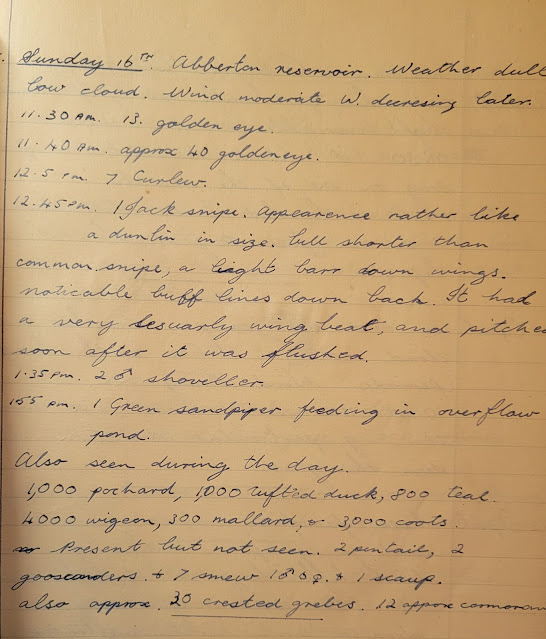 Sunday 16TH. Abberton reservoir. Weather dull
low cloud. Wind moderate W. decresing later.
11.30 AM. 13. golden eye.
11.40 AM. approx 40 goldeneye.
12.5 PM. 7 Curlew.
12.45 PM. 1 Jack snipe. Appearence rather like
a dunlin in size. bill shorter than
common snipe, a light barr down wings.
noticable buff lines down back. It had
a very wing beat, and pitched
soon after it was flushed.
1.35 PM. 2 ♂ shoveller
155 PM. 1 Green sandpiper feeding in overflow
pond.
Also seen during the day.
1,000 pochard, 1,000 tufted duck, 800 teal.
4000 wigeon, 300 mallard, & 3,000 coots.
Present but not seen. 2 pintail, 2
goosanders. & 7 smew & 1 scaup.
also approx. 30 crested grebes. 12 approx cormoran